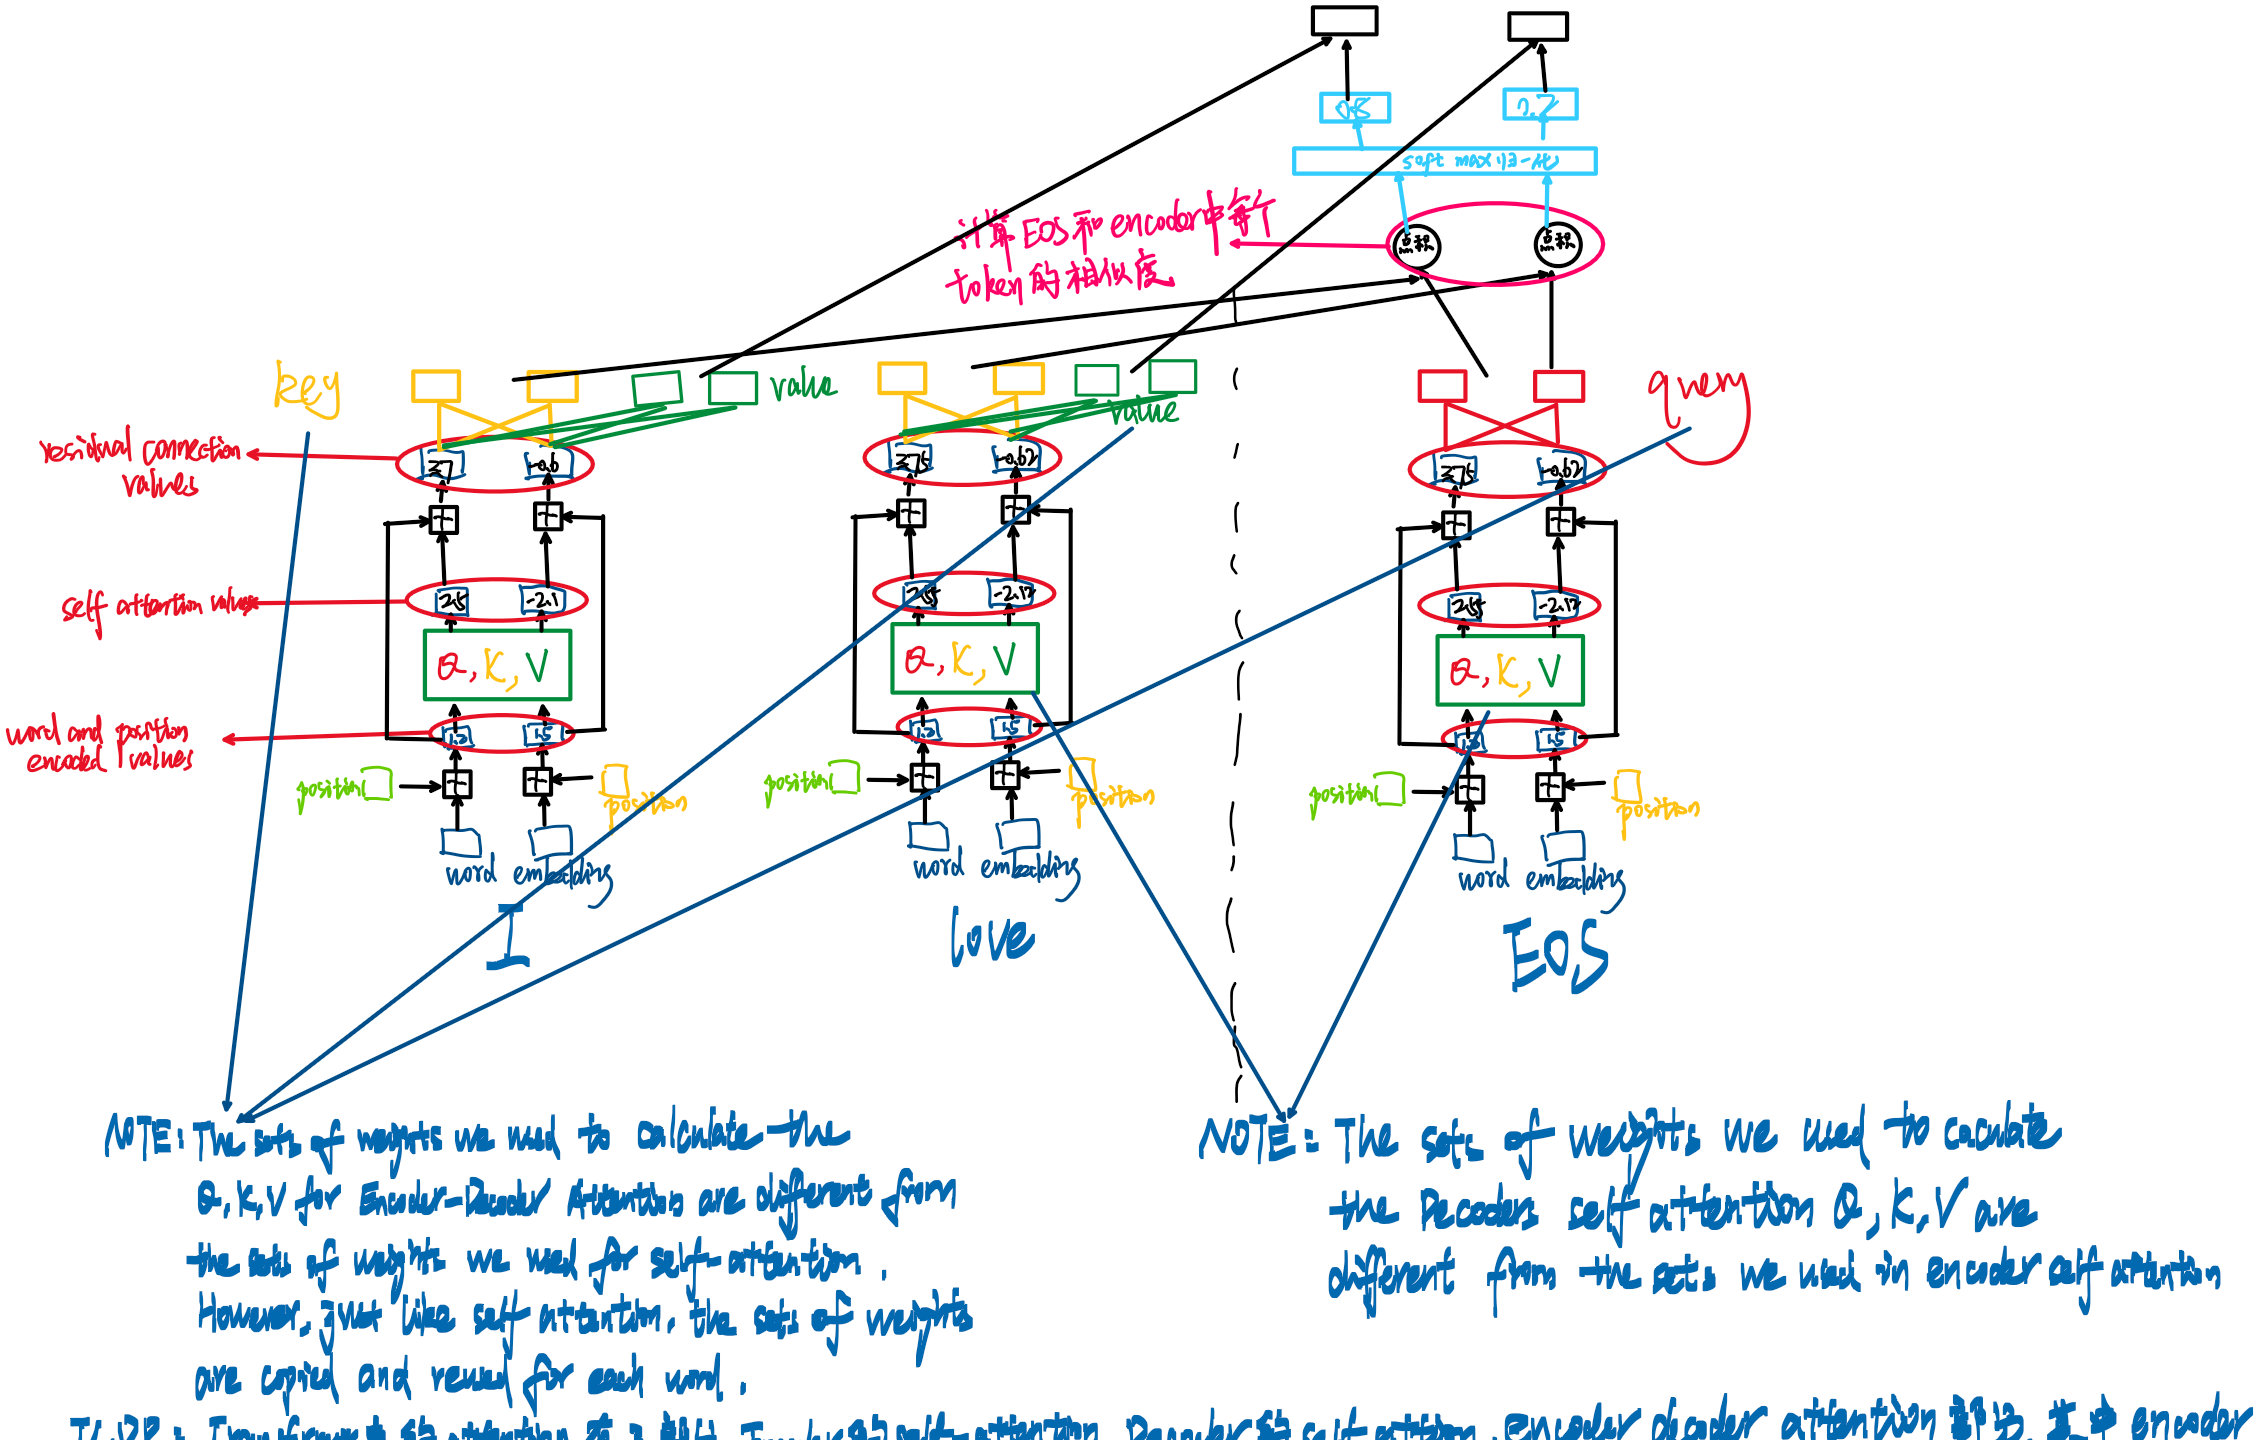 0.8
0.2
soft max 归一化
计算EOS和encoder中每个
token的相似度
点积
点积
key
value
value
query
residual connection
values
37
-0.6
3.75
-0.62
3.75
-0.62
self attention values
2.5
-2.1
2.55
-2.12
2.55
-2.12
Q, K, V
Q, K, V
Q, K, V
word and position
encoded values
1.3
1.5
1.3
1.5
1.3
1.5
position
position
position
position
position
position
word embedding
word embedding
word embedding
I
love
EOS
NOTE: The sets of weights we used to calculate the
Q, K, V for Encoder-Decoder Attention are different from
the sets of weights we used for self-attention.
However, just like self attention, the sets of weights
are copied and reused for each word.
NOTE: The sets of weights we used to caculate
the Decoders self attention Q, K, V are
different from the sets we used in encoder self attention
self-attention, Decoder的self attention, encoder decoder attention encoder